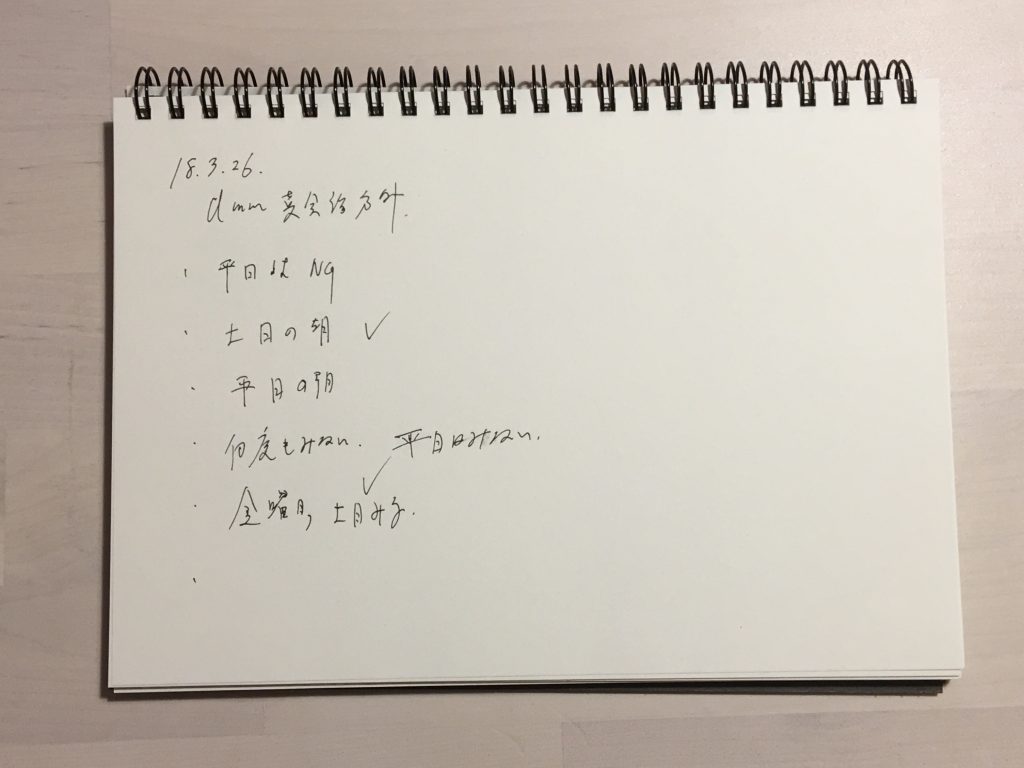 18.3.26.
dmm 英会話方針.
・平日は NG
・土日の朝 ✓
・平日の朝
・何度もみない. 平日はみない.
・金曜日, 土日みる. ✓
・